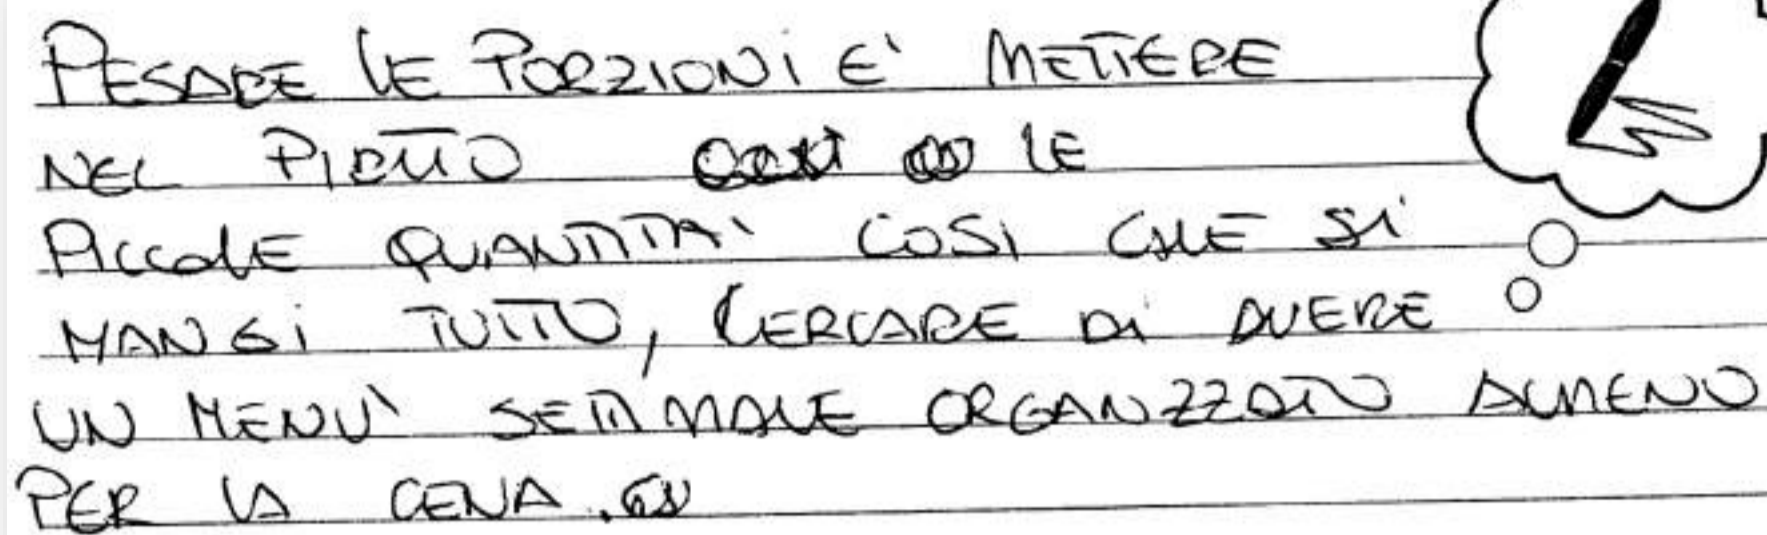 PESARE LE PORZIONI E' METTERE
NEL PIATTO LE
PICCOLE QUANTITA' COSI CHE SI
MANGI TUTTO, CERCARE DI AVERE
UN MENU' SETTIMANALE ORGANIZZATO ALMENO
PER LA CENA.